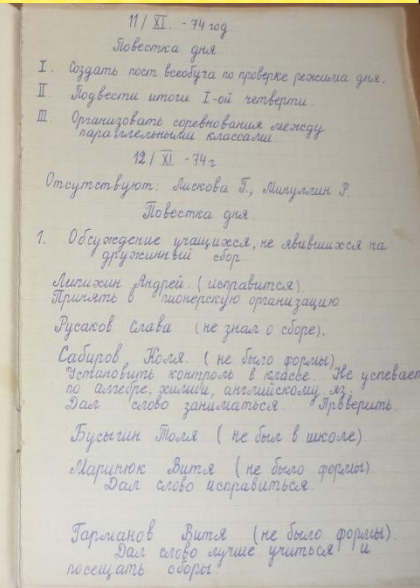 11/XI. -74 год
Повестка дня
I. Создать пост всеобуча по проверке режима дня.
II Подвести итоги I-ой четверти.
III Организовать соревнования между
параллельными классами.
12/XI -74 г
Отсутствуют: Лискова Г., Минуллин Р.
Повестка дня.
1. Обсуждение учащихся, не явившихся на
дружинный сбор.
Андрей. (исправится).
Принять в пионерскую организацию
Русаков Слава (не знал о сборе).
Сабиров Коля. (не было формы)
Установить контроль в классе. Не успевает
по алгебре, химии, английскому яз.
Дал слово заниматься. Проверить.
Бусыгин Толя (не был в школе).
Маринюк Витя (не было формы).
Дал слово исправиться.
Гарманов Витя (не было формы).
Дал слово лучше учиться и
посещать сборы.